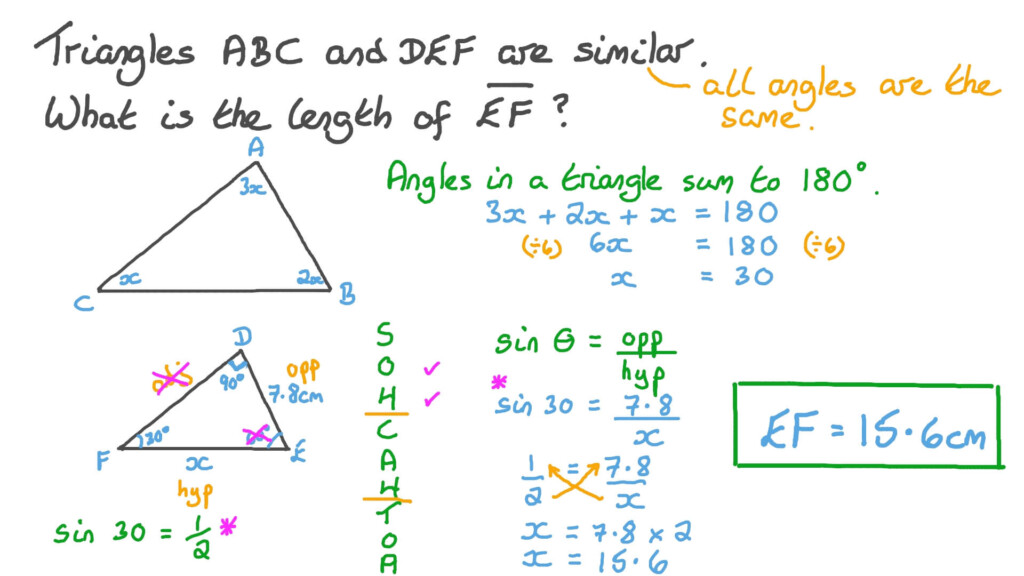 Triangles ABC and DEF are similar.
all angles are the
same.
What is the length of EF?
Angles in a triangle sum to 180°.
3x + 2x + x = 180
(÷6) 6x = 180 (÷6)
x = 30
A
3x
x
2x
C
B
D
90°
opp
7.8cm
30°
F
x
E
hyp
sin 30 = 1/2 *
S
O ✓
H ✓
C
A
H
T
O
A
sin θ = opp/hyp
* sin 30 = 7.8/x
1/2 = 7.8/x
x = 7.8 × 2
x = 15.6
EF = 15.6cm